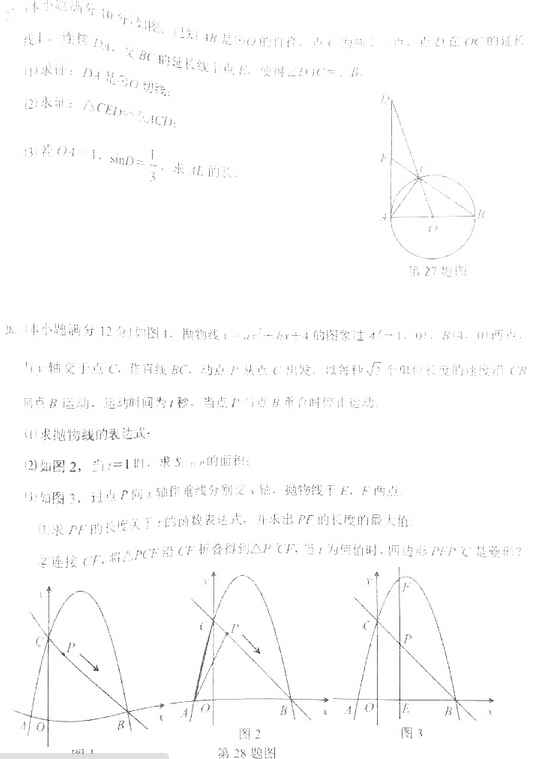 (本小题满分10分)如图，已知AB是⊙O的直径，点C为 一点，点D在OC的延长
线上，连接DA，交BC的延长线于点E，使得∠DAC=∠B.
(1)求证：DA是⊙O切线；
(2)求证：△CED∽△ACD；
(3)若OA=1，sinD=1/3，求AE的长.
D
E
A
O
B
第27题图
28. (本小题满分12分)如图1，抛物线y=ax²+bx+4的图象过A(-1，0)，B(4，0)两点，
与y轴交于点C，作直线BC，动点P从点C出发，以每秒√2个单位长度的速度沿CB
向点B运动，运动时间为t秒，当点P与点B重合时停止运动.
(1)求抛物线的表达式；
(2)如图2，当t=1时，求S 的面积；
(3)如图3，过点P向x轴作垂线分别交x轴，抛物线于E、F两点.
①求PF的长度关于t的函数表达式，并求出PF的长度的最大值；
②连接CF，将△PCF沿CF折叠得到△P′CF，当t为何值时，四边形PFP′C是菱形？
C P A O B x
y C P A O B x
y F C P A O E B x
图1
图2
图3
第28题图